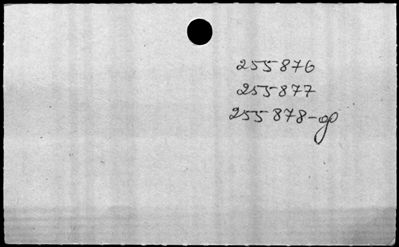 255876
255877
255878-90